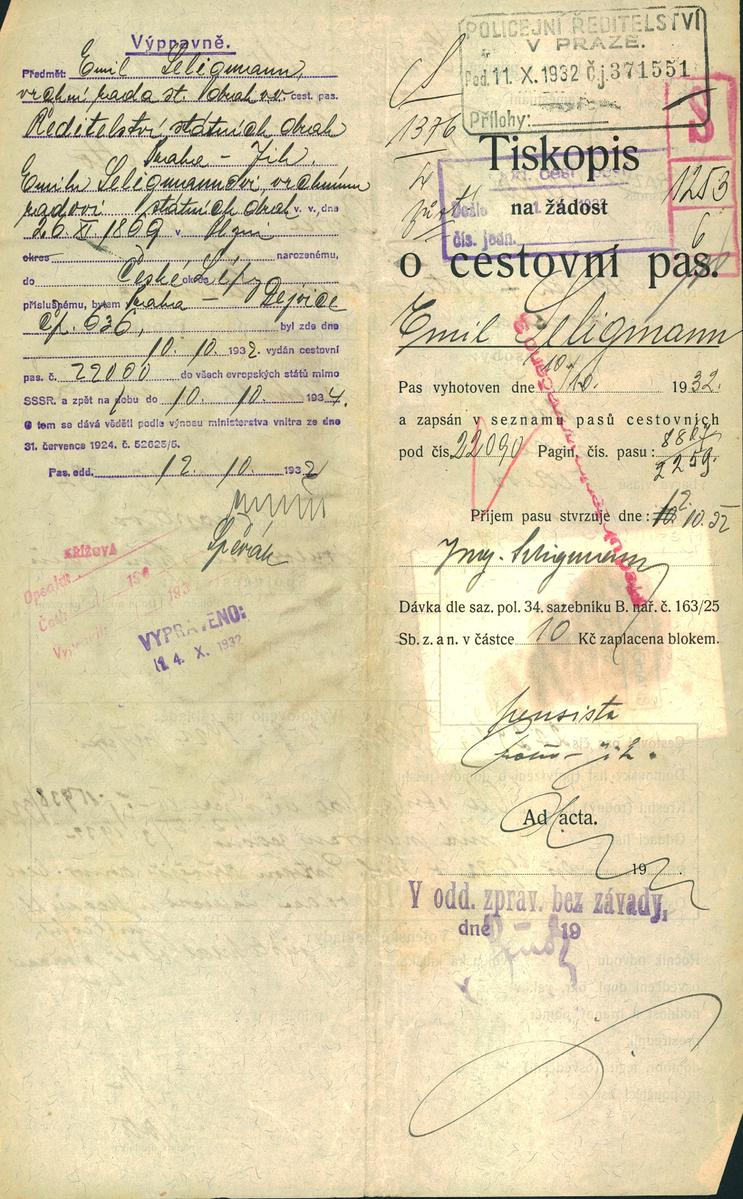 Výpravně.
Předmět: Emil Seligmann,
vrchní rada st. drah v.v. cest. pas.
Ředitelství státních drah
Praha - Jih.
Emilu Seligmannovi, vrchnímu
radovi státních drah v. v., dne
26 XI 1869 v Plzni
okres narozenému,
do České Lípy okres
příslušnému, bytem Praha - Dejvice
čp. 636, byl zde dne
10. 10. 1932 vydán cestovní
pas. č. 22090 do všech evropských států mimo
SSSR. a zpět na dobu do 10. 10. 1934.
O tem se dává věděti podle výnosu ministerstva vnitra ze dne
31. července 1924. č. 52625/5.
Pas. odd. 12. 10. 1932
Spěvák
KŘÍŽOVÁ
Opsal:
193
VYPRAVENO:
14. X. 1932
POLICEJNÍ ŘEDITELSTVÍ
V PRAZE.
Pod. 11. X. 1932 Č.j. 371551
Přílohy:
1376
S
1253
6
čís. jedn.
Tiskopis
na žádost
o cestovní pas.
Emil Seligmann
Pas vyhotoven dne 10/10. 1932.
a zapsán v seznamu pasů cestovních
pod čís. 22090 Pagin. čís. pasu: 8807
2259.
Příjem pasu stvrzuje dne: 12. 10. 32
Ing. Seligmann
Dávka dle saz. pol. 34. sazebníku B. nař. č. 163/25
Sb. z. a n. v částce 10 Kč zaplacena blokem.
pensista
Ad acta.
19
V odd. zprav. bez závady,
dne 19